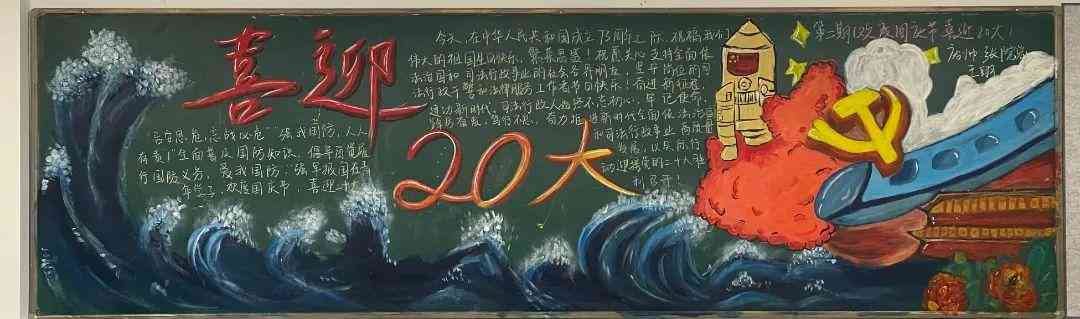 喜迎
20大
今天,在中华人民共和国成立73周年之际,祝福我们
伟大的祖国生日快乐,繁荣昌盛!祝愿关心支持全面依
法治国和司法行政事业的社会各界朋友,坚守岗位的司
法行政干警和法律服务工作者节日快乐!奋进新征程,
建功新时代,司法行政人始终不忘初心,牢记使命,
踔厉奋发,笃行不怠,奋力推进新时代全面依法治国
和司法行政事业高质量
发展,以实际行
动迎接党的二十大胜
利召开!
"居安思危,忘战必危"强我国防,人人
有责!全面普及国防知识,倡导质量
行国防义务,爱我国防:强军报国在
年学子,欢度国庆节,喜迎二十大
第二期《欢度国庆节喜迎20大》